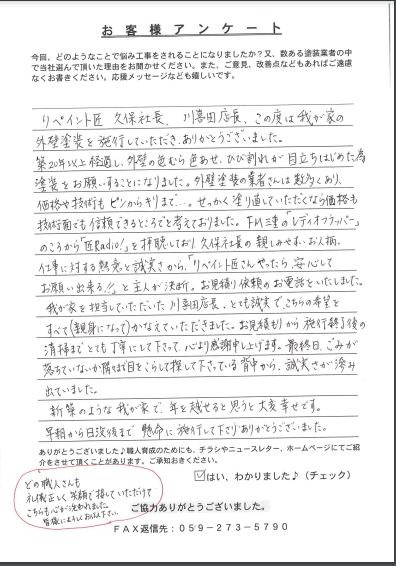 お客様アンケート
今回、どのようなことで悩み工事をされることになりましたか?又、数ある塗装業者の中
で当社選んで頂いた理由をお聞かせください。また、ご意見、改善点などもあればご遠慮
なくお書きください。応援メッセージなども嬉しいです。
リペイント匠 久保社長、川喜田店長、この度は我が家の
外壁塗装を施行していただき、ありがとうございました。
築20年以上経過し、外壁の色むら色あせ、ひび割れが目立ちはじめた為
塗装をお願いすることになりました。外壁塗装の業者さんは数多くあり、
価格や技術もピンからキリまで…。せっかく塗り直していただくなら価格も
技術面でも信頼できるところでと考えておりました。FM三重の「レディオフラッパー」
のころから「匠Radio!」を拝聴しており久保社長の親しみやすいお人柄、
仕事に対する熱意と誠実さから、「リペイント匠さんやったら、安心して
お願い出来る!!」と主人が決め、お見積り依頼のお電話をいたしました。
我が家を担当していただいた川喜田店長、とても誠実で、こちらの希望を
すべて(親身になって)かなえていただきました。お見積もりから施行終了後の
清掃までとても丁寧にして下さって、心より感謝申し上げます。最終日、ごみが
落ちていないか隅々まで目をこらして探して下さっている背中から、誠実さが滲み
出ていました。
新築のような我が家で、年を越せると思うと大変幸せです。
早朝から日没後まで懸命に施行して下さりありがとうございました。
ありがとうございました♪職人育成のためにも、チラシやニュースレター、ホームページにてご紹
介をさせて頂くことがあります。ご承知おきください。
☑はい、わかりました♪(チェック)
どの職人さんも
礼儀正しく笑顔で接していただけて
こちらも心が洗われました。
皆様によろしくお伝え下さい。
ご協力ありがとうございました。
FAX返信先:059-273-5790